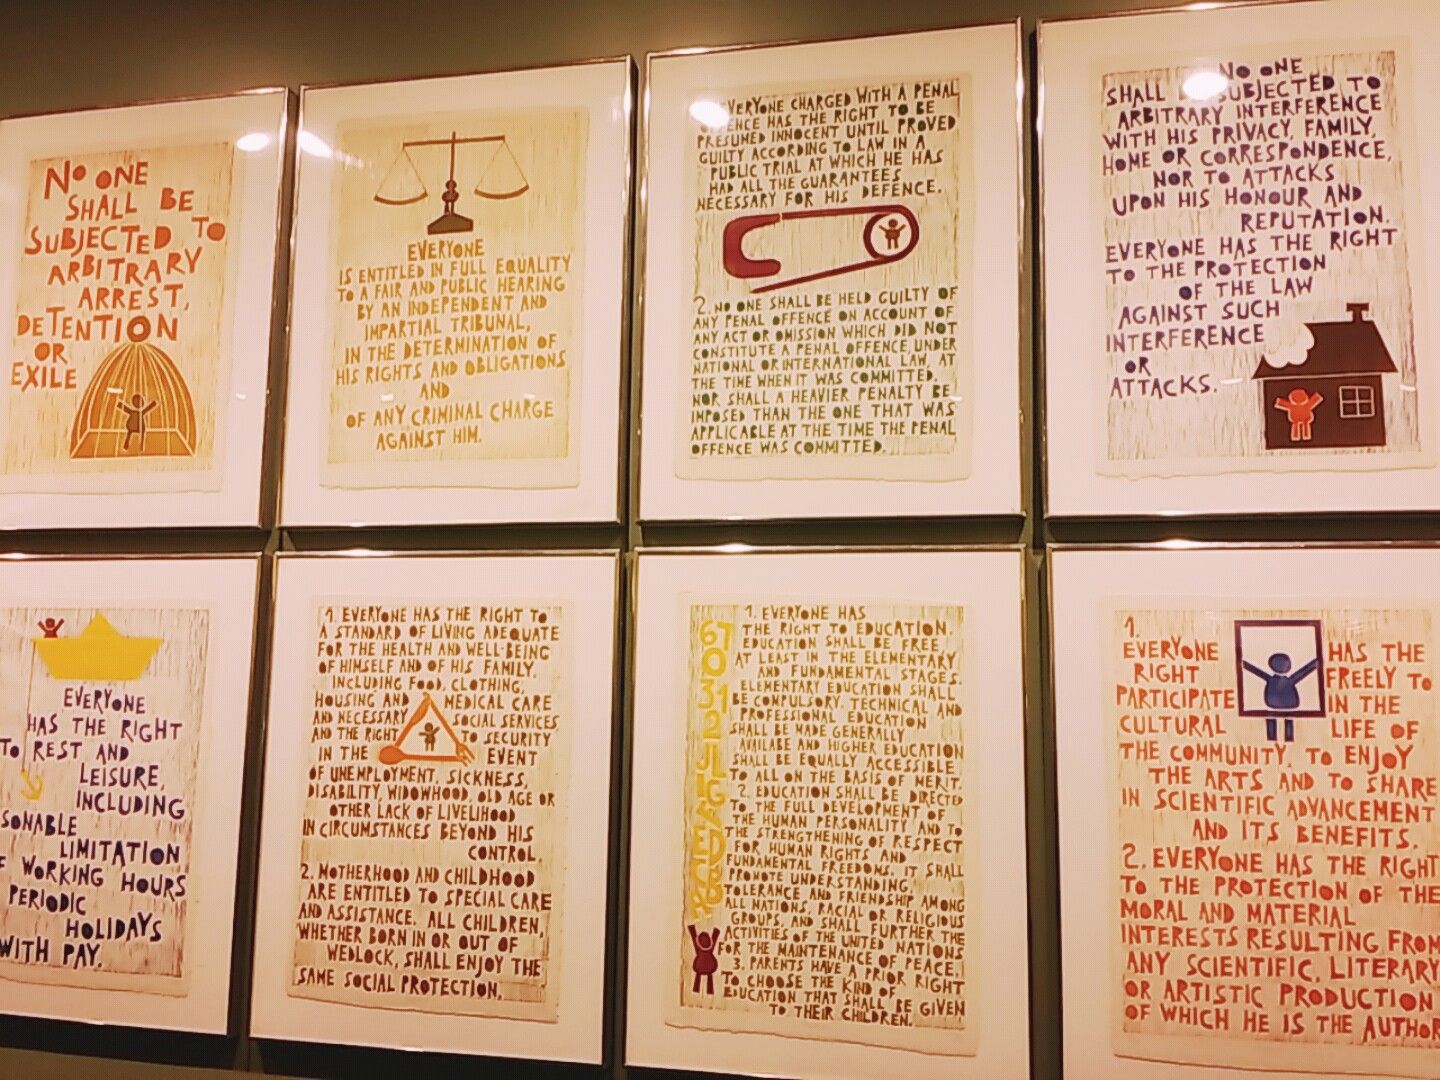 NO ONE
SHALL BE
SUBJECTED TO
ARBITRARY
ARREST,
DETENTION
OR
EXILE
EVERYONE
IS ENTITLED IN FULL EQUALITY
TO A FAIR AND PUBLIC HEARING
BY AN INDEPENDENT AND
IMPARTIAL TRIBUNAL,
IN THE DETERMINATION OF
HIS RIGHTS AND OBLIGATIONS
AND
OF ANY CRIMINAL CHARGE
AGAINST HIM.
EVERYONE CHARGED WITH A PENAL
OFFENCE HAS THE RIGHT TO BE
PRESUMED INNOCENT UNTIL PROVED
GUILTY ACCORDING TO LAW IN A
PUBLIC TRIAL AT WHICH HE HAS
HAD ALL THE GUARANTEES
NECESSARY FOR HIS DEFENCE.
2. NO ONE SHALL BE HELD GUILTY OF
ANY PENAL OFFENCE ON ACCOUNT OF
ANY ACT OR OMISSION WHICH DID NOT
CONSTITUTE A PENAL OFFENCE, UNDER
NATIONAL OR INTERNATIONAL LAW, AT
THE TIME WHEN IT WAS COMMITTED.
NOR SHALL A HEAVIER PENALTY BE
IMPOSED THAN THE ONE THAT WAS
APPLICABLE AT THE TIME THE PENAL
OFFENCE WAS COMMITTED.
NO ONE
SHALL SUBJECTED TO
ARBITRARY INTERFERENCE
WITH HIS PRIVACY, FAMILY,
HOME OR CORRESPONDENCE,
NOR TO ATTACKS
UPON HIS HONOUR AND
REPUTATION.
EVERYONE HAS THE RIGHT
TO THE PROTECTION
OF THE LAW
AGAINST SUCH
INTERFERENCE
OR
ATTACKS.
EVERYONE
HAS THE RIGHT
TO REST AND
LEISURE,
INCLUDING
SONABLE
LIMITATION
F WORKING HOURS
PERIODIC
HOLIDAYS
WITH PAY.
1. EVERYONE HAS THE RIGHT TO
A STANDARD OF LIVING ADEQUATE
FOR THE HEALTH AND WELL-BEING
OF HIMSELF AND OF HIS FAMILY.
INCLUDING FOOD, CLOTHING,
HOUSING AND MEDICAL CARE
AND NECESSARY SOCIAL SERVICES
AND THE RIGHT TO SECURITY
IN THE EVENT
OF UNEMPLOYMENT, SICKNESS,
DISABILITY, WIDOWHOOD, OLD AGE OR
OTHER LACK OF LIVELIHOOD
IN CIRCUMSTANCES BEYOND HIS
CONTROL.
2. MOTHERHOOD AND CHILDHOOD
ARE ENTITLED TO SPECIAL CARE
AND ASSISTANCE. ALL CHILDREN,
WHETHER BORN IN OR OUT OF
WEDLOCK, SHALL ENJOY THE
SAME SOCIAL PROTECTION.
1. EVERYONE HAS
THE RIGHT TO EDUCATION.
EDUCATION SHALL BE FREE,
AT LEAST IN THE ELEMENTARY
AND FUNDAMENTAL STAGES.
ELEMENTARY EDUCATION SHALL
BE COMPULSORY. TECHNICAL AND
PROFESSIONAL EDUCATION
SHALL BE MADE GENERALLY
AVAILABE AND HIGHER EDUCATION
SHALL BE EQUALLY ACCESSIBLE
TO ALL ON THE BASIS OF MERIT.
2. EDUCATION SHALL BE DIRECTED
TO THE FULL DEVELOPMENT OF
THE HUMAN PERSONALITY AND TO
THE STRENGTHENING OF RESPECT
FOR HUMAN RIGHTS AND
FUNDAMENTAL FREEDOMS. IT SHALL
PROMOTE UNDERSTANDING,
TOLERANCE AND FRIENDSHIP AMONG
ALL NATIONS, RACIAL OR RELIGIOUS
GROUPS, AND SHALL FURTHER THE
ACTIVITIES OF THE UNITED NATIONS
FOR THE MAINTENANCE OF PEACE.
3. PARENTS HAVE A PRIOR RIGHT
TO CHOOSE THE KIND OF
EDUCATION THAT SHALL BE GIVEN
TO THEIR CHILDREN.
1.
EVERYONE HAS THE
RIGHT FREELY TO
PARTICIPATE IN THE
CULTURAL LIFE OF
THE COMMUNITY, TO ENJOY
THE ARTS AND TO SHARE
IN SCIENTIFIC ADVANCEMENT
AND ITS BENEFITS.
2. EVERYONE HAS THE RIGHT
TO THE PROTECTION OF THE
MORAL AND MATERIAL
INTERESTS RESULTING FROM
ANY SCIENTIFIC, LITERARY
OR ARTISTIC PRODUCTION
OF WHICH HE IS THE AUTHOR